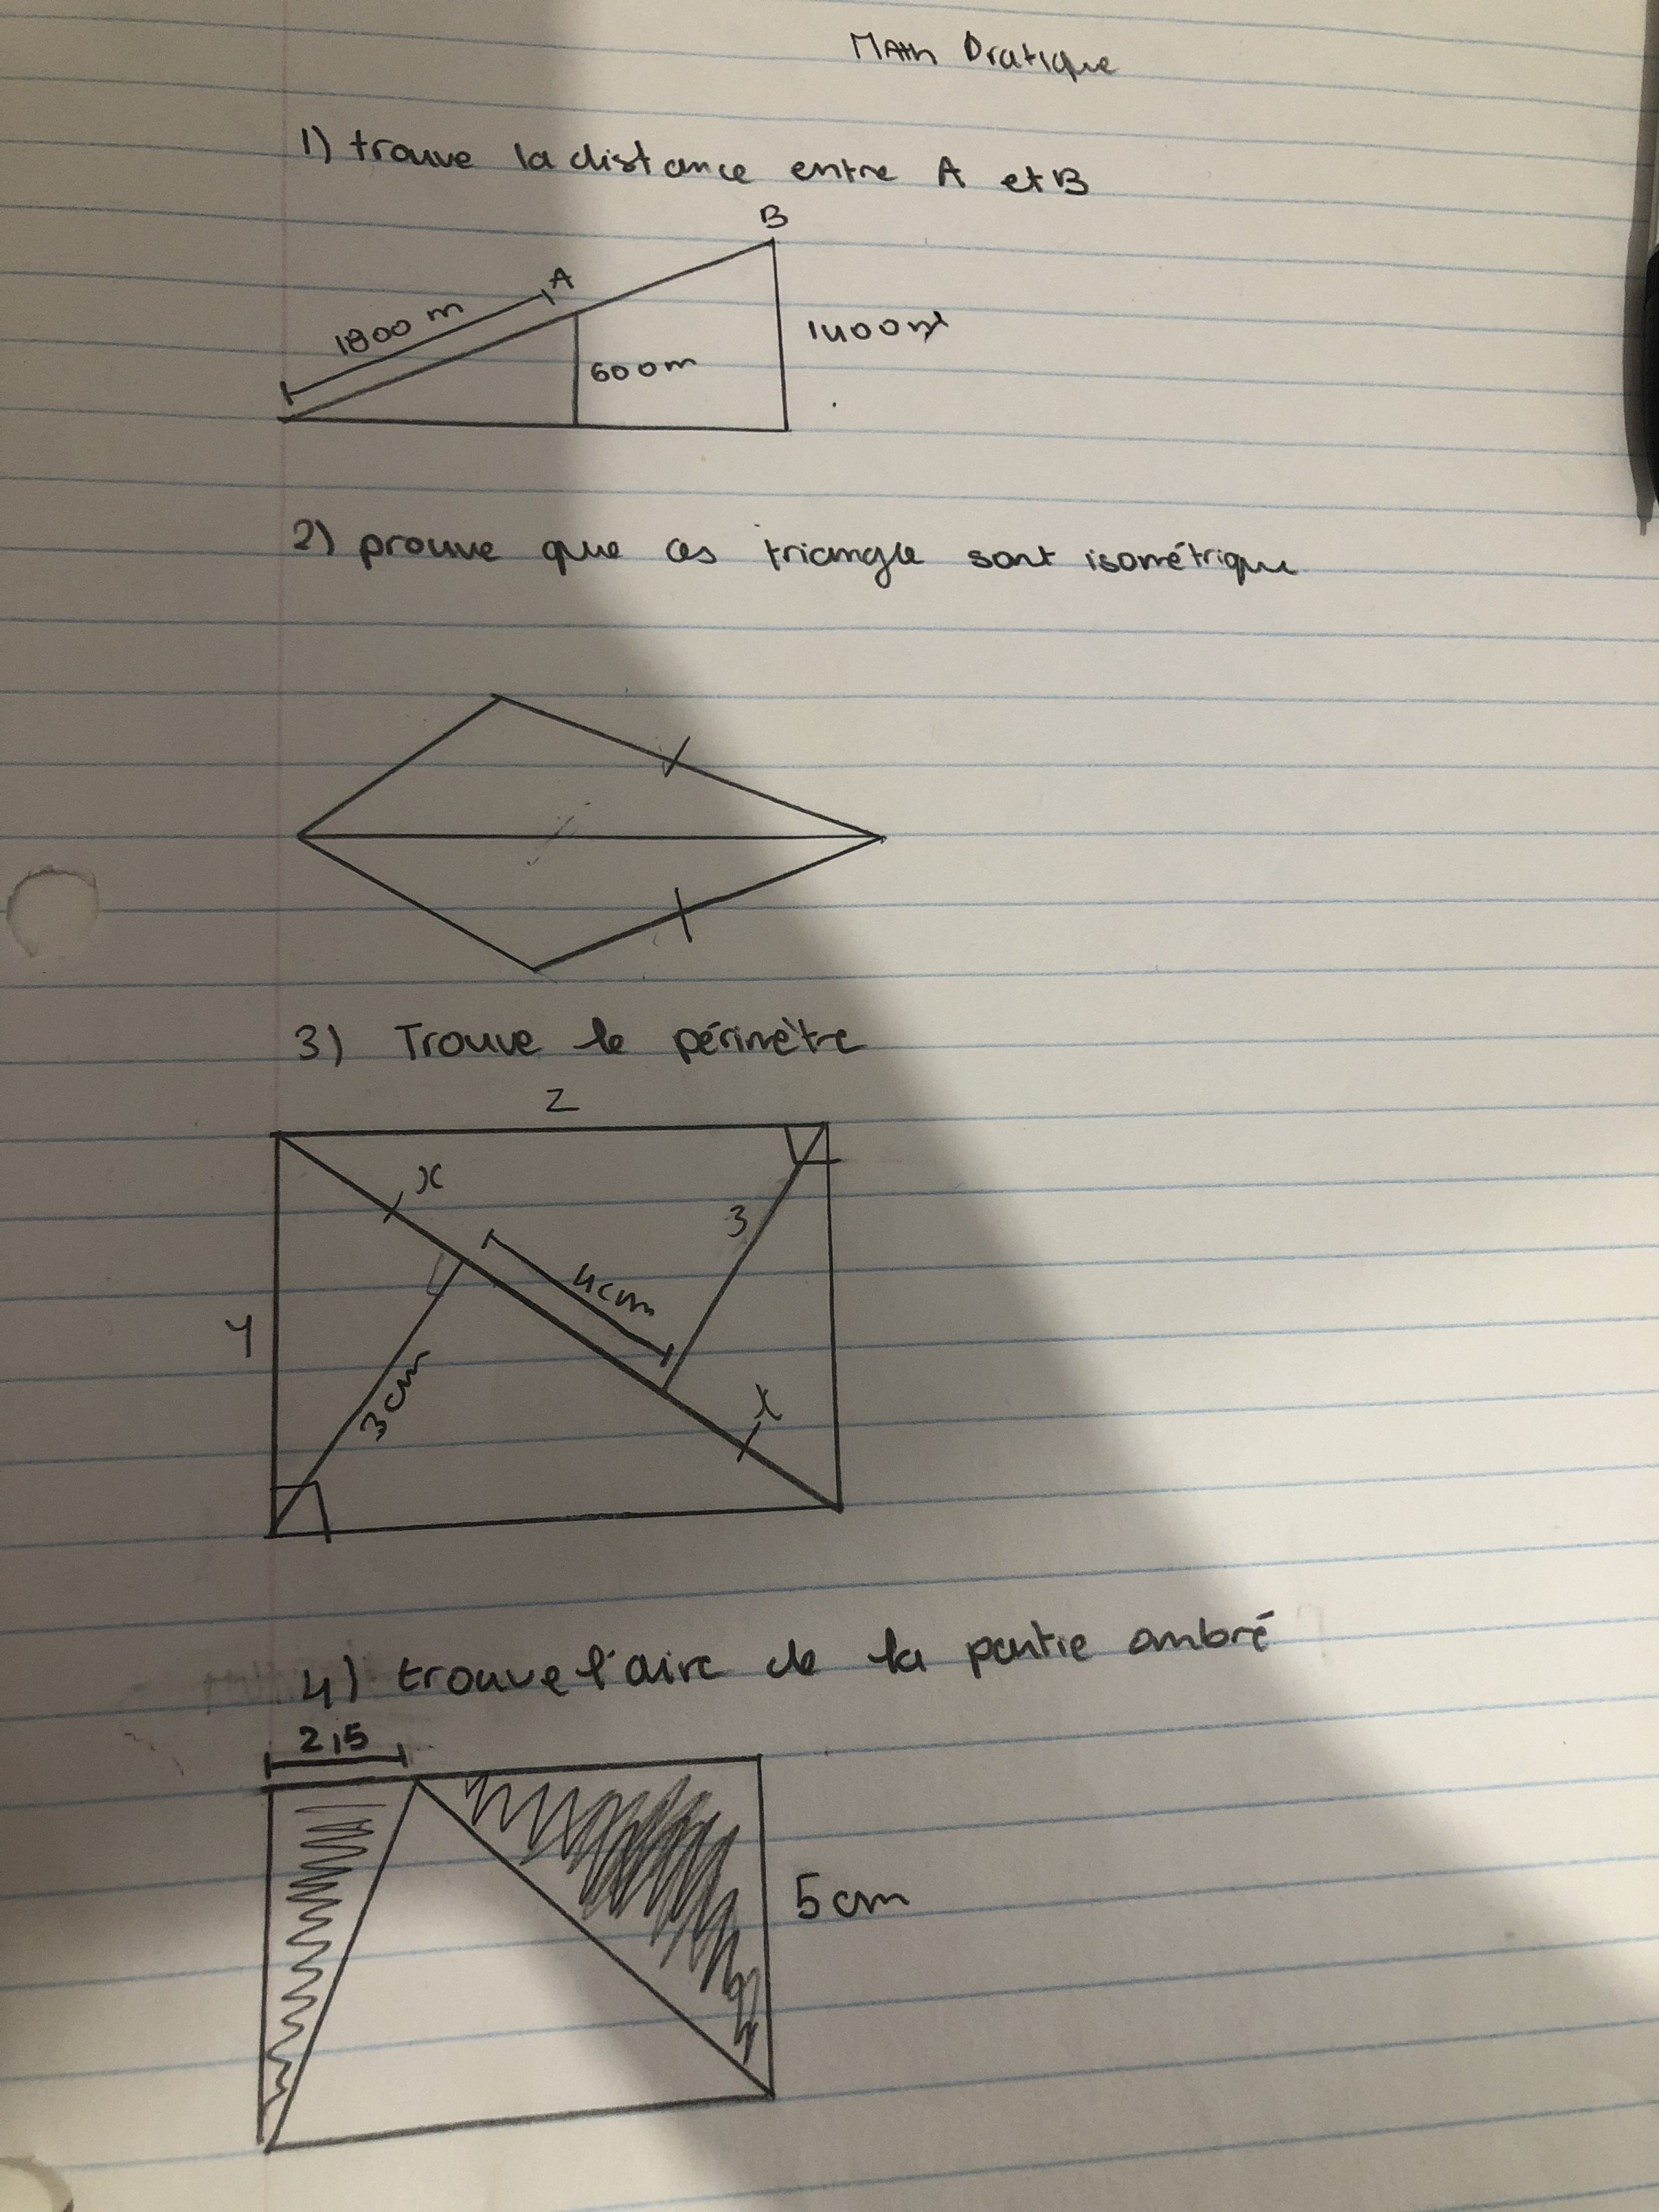 Math Pratique
1) trouve la distance entre A et B
B
A
1800 m
1400 m
600m
2) prouve que ces triangle sont isométrique
3) Trouve le périmètre
z
x
3
4cm
y
3cm
x
4) trouve l'aire de la partie ombré
2,5
5cm